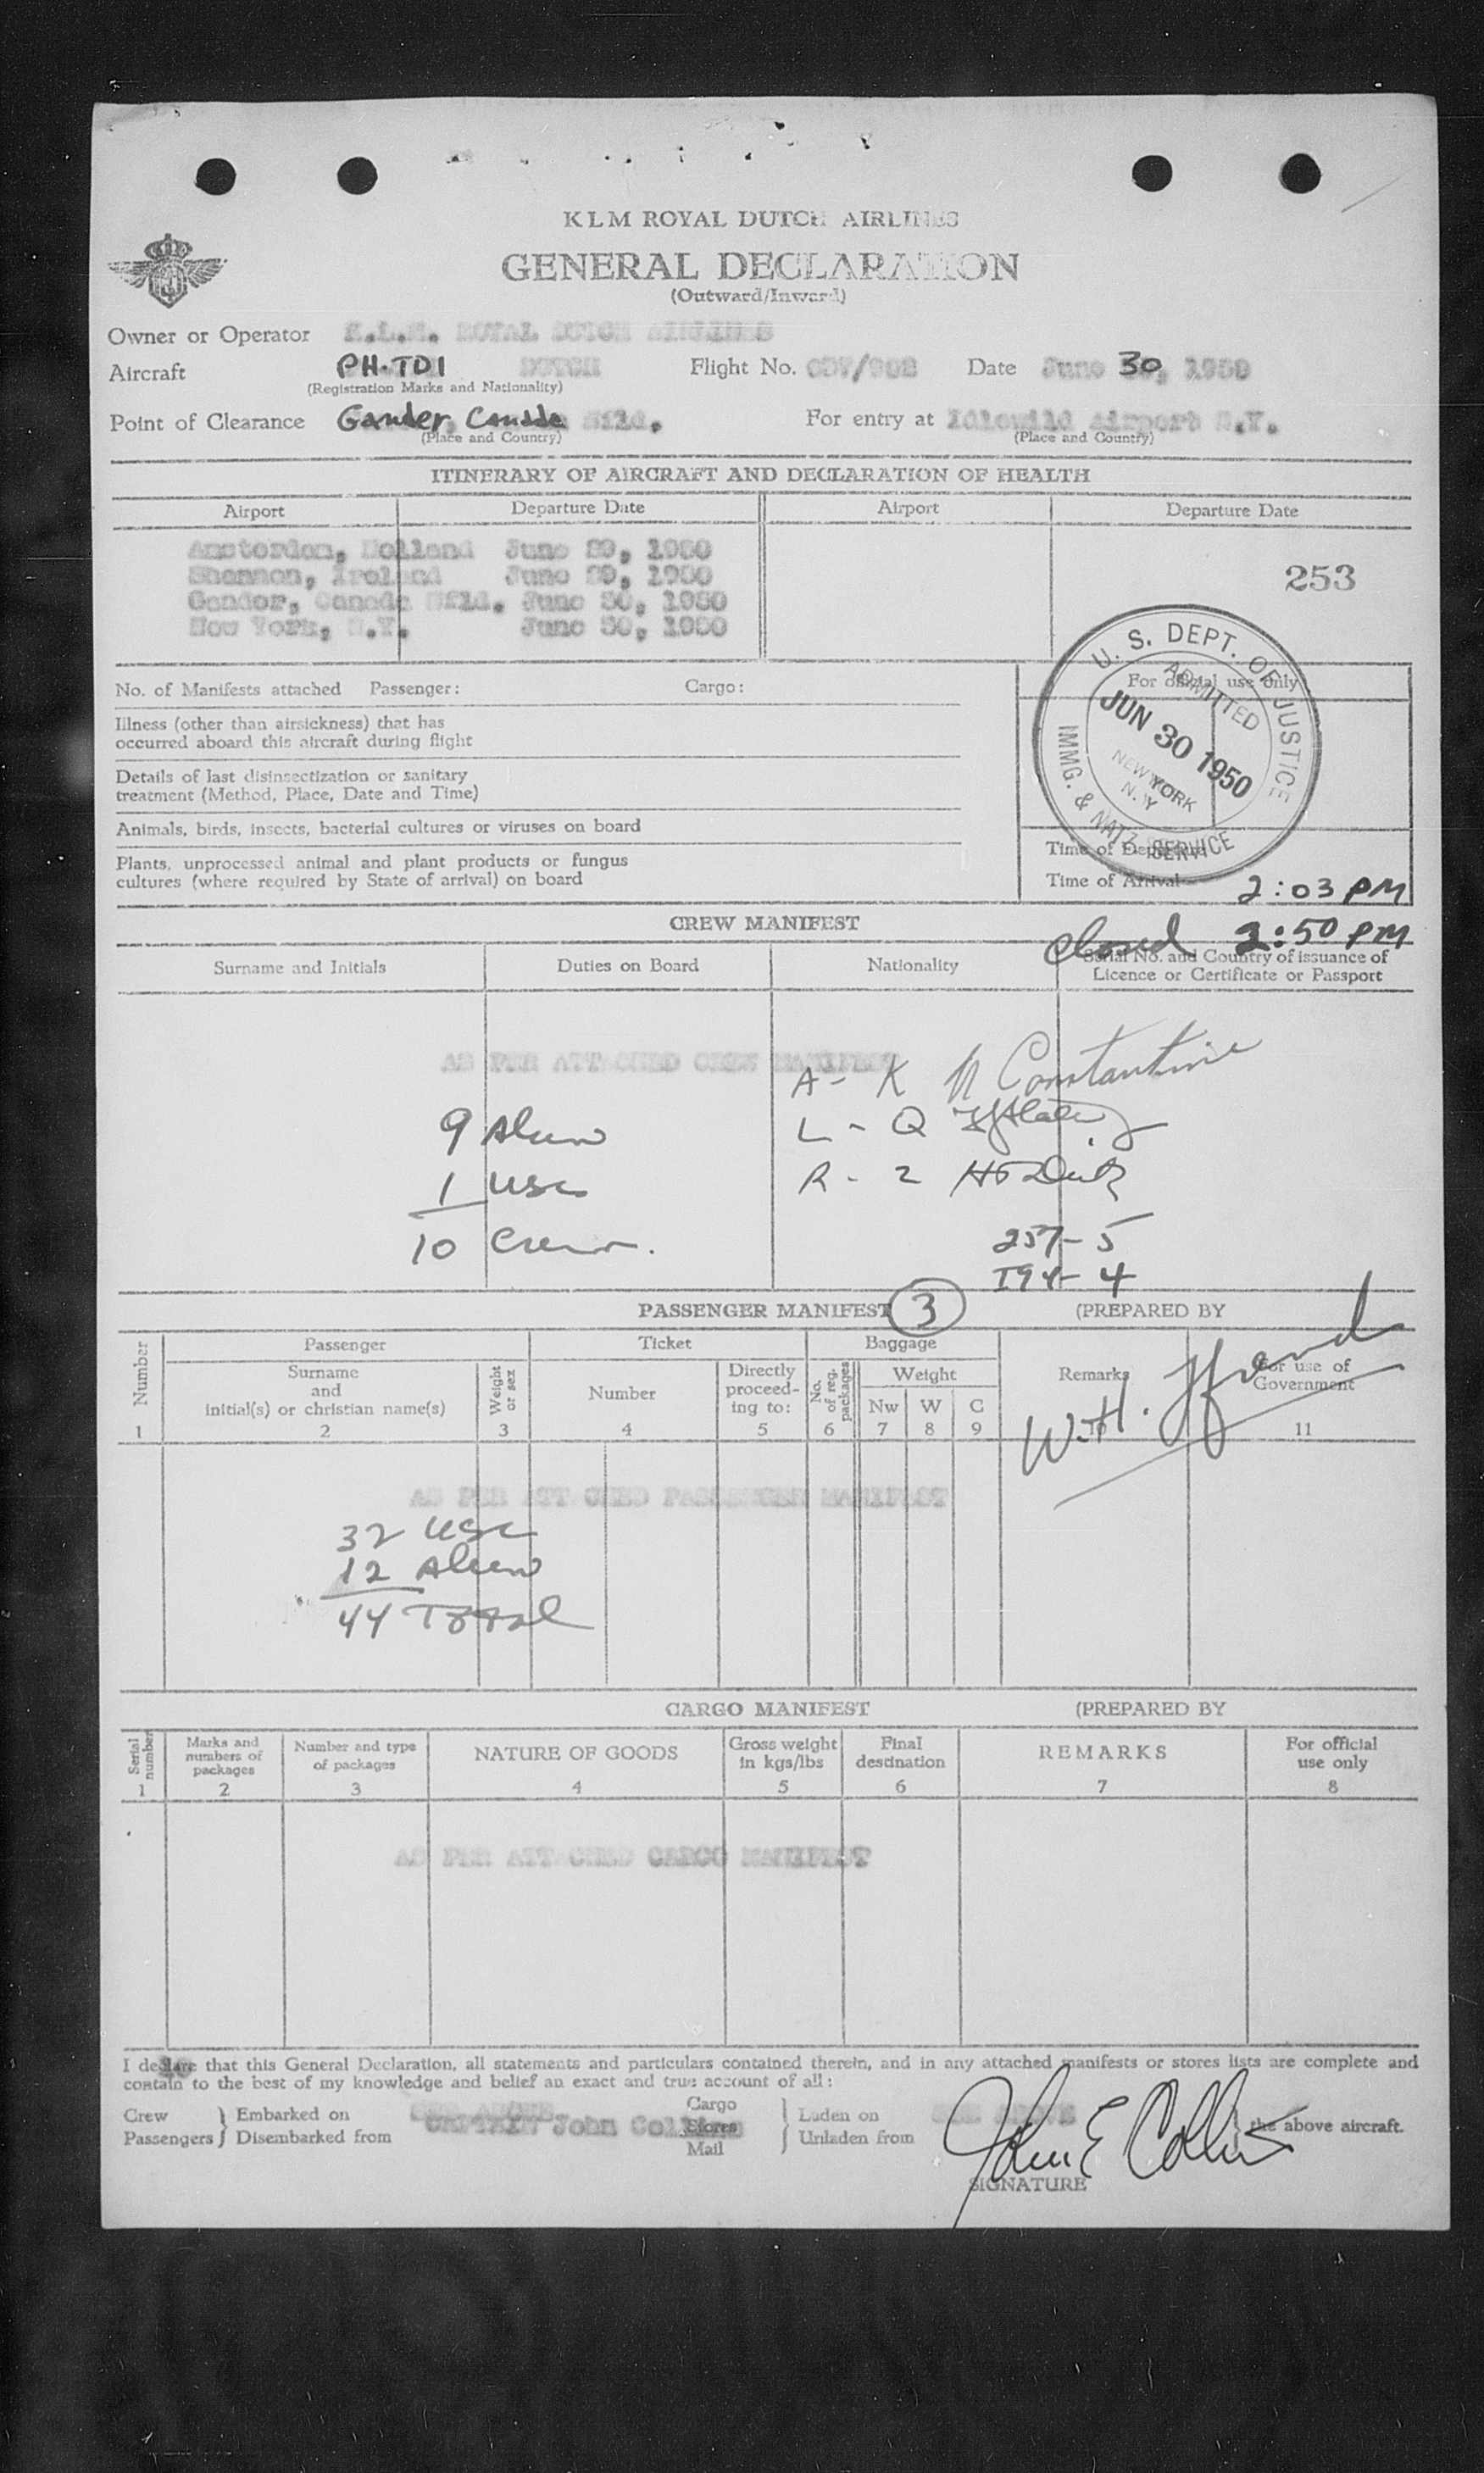 KLM ROYAL DUTCH AIRLINES
GENERAL DECLARATION
(Outward/Inward)
Owner or Operator K.L.M. ROYAL DUTCH AIRLINES
Aircraft PH-TDI DUTCH Flight No. Date June 30, 1950
(Registration Marks and Nationality)
Point of Clearance Gander, Canada Nfld. For entry at Idlewild Airport N.Y.
(Place and Country) (Place and Country)
ITINERARY OF AIRCRAFT AND DECLARATION OF HEALTH
Airport Departure Date Airport Departure Date
Amsterdam, Holland June 29, 1950
Shannon, Ireland June 29, 1950
253
Gander, Canada Nfld. June 30, 1950
New York, N.Y. June 30, 1950
U. S. DEPT. OF JUSTICE
ADMITTED
JUN 30 1950
NEW YORK
N.Y.
IMMG. & NATZ. SERVICE
No. of Manifests attached Passenger: Cargo: For official use only
Illness (other than airsickness) that has
occurred aboard this aircraft during flight
Details of last disinsectization or sanitary
treatment (Method, Place, Date and Time)
Animals, birds, insects, bacterial cultures or viruses on board
Plants, unprocessed animal and plant products or fungus
cultures (where required by State of arrival) on board
Time of Departure
Time of Arrival 2:03 PM
CREW MANIFEST closed 2:50 PM
Surname and Initials Duties on Board Nationality Serial No. and Country of issuance of
Licence or Certificate or Passport
AS PER ATTACHED CREW MANIFEST
A - K N Constantine
9 Alien L - Q
1 USC R - Z
10 Crew. 257 - 5
I94 - 4
PASSENGER MANIFEST 3 (PREPARED BY
Number Passenger Ticket Baggage Remarks For use of
Government
Surname
and
initial(s) or christian name(s)
Weight
or sex
Number
Directly
proceed-
ing to:
No.
of reg.
packages
Weight
Nw W C
1 2 3 4 5 6 7 8 9 10 11
W.H.
AS PER ATTACHED PASSENGER MANIFEST
32 USC
12 Alien
44 Total
CARGO MANIFEST (PREPARED BY
Serial
number
Marks and
numbers of
packages
Number and type
of packages
NATURE OF GOODS
Gross weight
in kgs/lbs
Final
destination
REMARKS
For official
use only
1 2 3 4 5 6 7 8
AS PER ATTACHED CARGO MANIFEST
I declare that this General Declaration, all statements and particulars contained therein, and in any attached manifests or stores lists are complete and
contain to the best of my knowledge and belief an exact and true account of all:
Crew Embarked on SEE ABOVE Cargo Laden on SEE ABOVE the above aircraft.
Passengers Disembarked from CAPTAIN John Collins Stores Unladen from
Mail
John E Collins
SIGNATURE